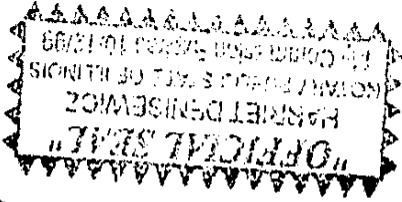 "OFFICIAL SEAL"
HARRIET DENISEWICZ
NOTARY PUBLIC STATE OF ILLINOIS
My Commission Expires 10/12/99